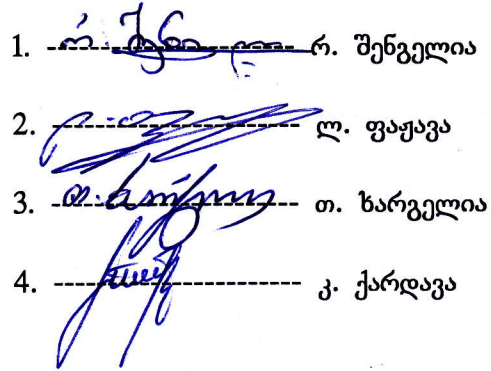 1. ---------------------- რ. შენგელია
2. ---------------------- ლ. ფაჟავა
3. ---------------------- თ. ხარგელია
4. ---------------------- კ. ქარდავა